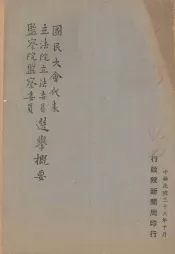 國民大會代表
立法院立法委員選舉概要
監察院監察委員
中華民國三十六年十月
行政院新聞局印行